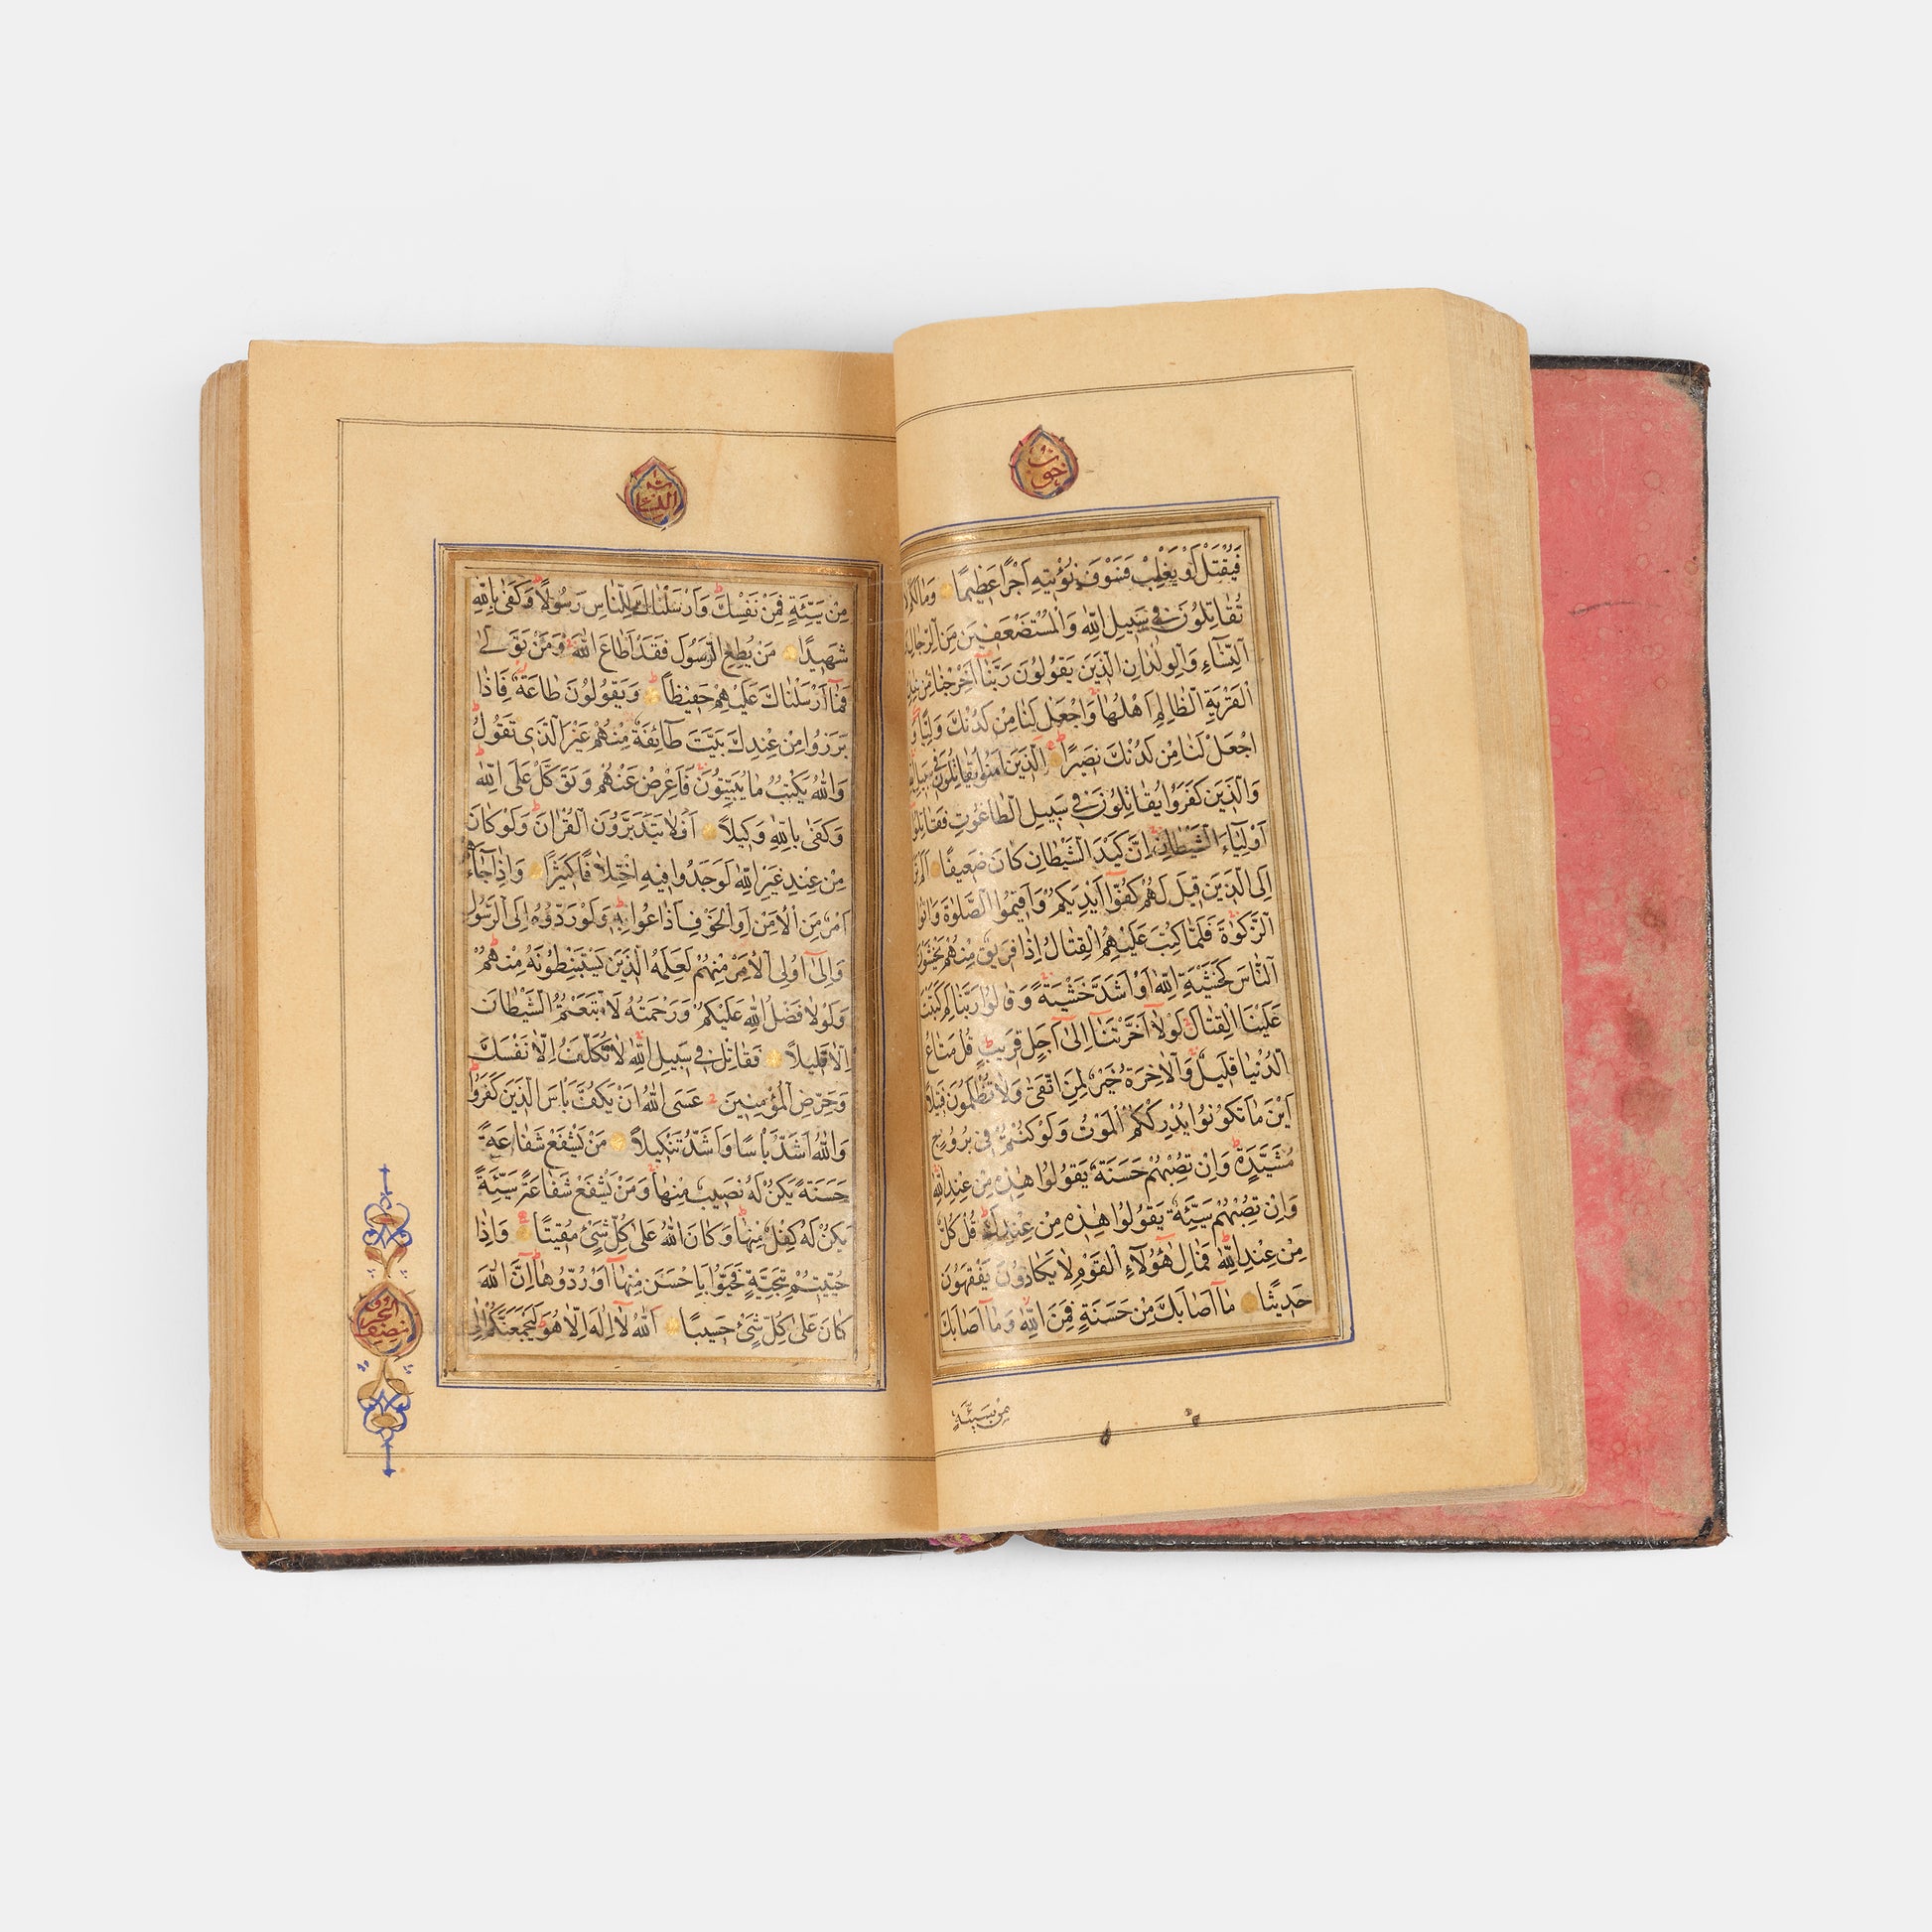 خوب
فَيُقْتَلْ اَوْ يَغْلِبْ فَسَوْفَ نُؤْتيهِ اَجْرًا عَظيمًا وَمَا لَكُمْ لَا
تُقَاتِلُونَ في سَبيلِ اللّٰهِ وَالْمُسْتَضْعَفينَ مِنَ الرِّجَالِ وَ
النِّسَآءِ وَالْوِلْدَانِ الَّذينَ يَقُولُونَ رَبَّنَآ اَخْرِجْنَا مِنْ هٰذِهِ
الْقَرْيَةِ الظَّالِمِ اَهْلُهَا وَاجْعَلْ لَنَا مِنْ لَدُنْكَ وَلِيًّا وَ
اجْعَلْ لَنَا مِنْ لَدُنْكَ نَصيرًا اَلَّذينَ اٰمَنُوا يُقَاتِلُونَ في سَبيلِ اللّٰهِ
وَالَّذينَ كَفَرُوا يُقَاتِلُونَ في سَبيلِ الطَّاغُوتِ فَقَاتِلُوا
اَوْلِيَآءَ الشَّيْطَانِ اِنَّ كَيْدَ الشَّيْطَانِ كَانَ ضَعيفًا اَلَمْ تَرَ
اِلَى الَّذينَ قيلَ لَهُمْ كُفُّوآ اَيْدِيَكُمْ وَاَقيمُوا الصَّلٰوةَ وَاٰتُوا
الزَّكٰوةَ فَلَمَّا كُتِبَ عَلَيْهِمُ الْقِتَالُ اِذَا فَريقٌ مِنْهُمْ يَخْشَوْنَ
النَّاسَ كَخَشْيَةِ اللّٰهِ اَوْ اَشَدَّ خَشْيَةً وَقَالُوا رَبَّنَا لِمَ كَتَبْتَ
عَلَيْنَا الْقِتَالَ لَوْلَآ اَخَّرْتَنَآ اِلٰىٓ اَجَلٍ قَريبٍ قُلْ مَتَاعُ
الدُّنْيَا قَليلٌ وَالْاٰخِرَةُ خَيْرٌ لِمَنِ اتَّقٰى وَلَا تُظْلَمُونَ فَتيلًا
اَيْنَ مَا تَكُونُوا يُدْرِكْكُمُ الْمَوْتُ وَلَوْ كُنْتُمْ في بُرُوجٍ
مُشَيَّدَةٍ وَاِنْ تُصِبْهُمْ حَسَنَةٌ يَقُولُوا هٰذِهِ مِنْ عِنْدِ اللّٰهِ
وَاِنْ تُصِبْهُمْ سَيِّئَةٌ يَقُولُوا هٰذِهِ مِنْ عِنْدِكَ قُلْ كُلٌّ
مِنْ عِنْدِ اللّٰهِ فَمَالِ هٰٓؤُلَآءِ الْقَوْمِ لَا يَكَادُونَ يَفْقَهُونَ
حَديثًا مَآ اَصَابَكَ مِنْ حَسَنَةٍ فَمِنَ اللّٰهِ وَمَآ اَصَابَكَ
مِنْ سَيِّئَةٍ
النساء
مِنْ سَيِّئَةٍ فَمِنْ نَفْسِكَ وَاَرْسَلْنَاكَ لِلنَّاسِ رَسُولًا وَكَفٰى بِاللّٰهِ
شَهيدًا مَنْ يُطِعِ الرَّسُولَ فَقَدْ اَطَاعَ اللّٰهَ وَمَنْ تَوَلّٰى
فَمَآ اَرْسَلْنَاكَ عَلَيْهِمْ حَفيظًا وَيَقُولُونَ طَاعَةٌ فَاِذَا
بَرَزُوا مِنْ عِنْدِكَ بَيَّتَ طَآئِفَةٌ مِنْهُمْ غَيْرَ الَّذي تَقُولُ
وَاللّٰهُ يَكْتُبُ مَا يُبَيِّتُونَ فَاَعْرِضْ عَنْهُمْ وَتَوَكَّلْ عَلَى اللّٰهِ
وَكَفٰى بِاللّٰهِ وَكيلًا اَفَلَا يَتَدَبَّرُونَ الْقُرْاٰنَ وَلَوْ كَانَ
مِنْ عِنْدِ غَيْرِ اللّٰهِ لَوَجَدُوا فيهِ اخْتِلَافًا كَثيرًا وَاِذَا جَآءَهُمْ
اَمْرٌ مِنَ الْاَمْنِ اَوِ الْخَوْفِ اَذَاعُوا بِهِ وَلَوْ رَدُّوهُ اِلَى الرَّسُولِ
وَاِلٰىٓ اُولِي الْاَمْرِ مِنْهُمْ لَعَلِمَهُ الَّذينَ يَسْتَنْبِطُونَهُ مِنْهُمْ
وَلَوْلَا فَضْلُ اللّٰهِ عَلَيْكُمْ وَرَحْمَتُهُ لَاتَّبَعْتُمُ الشَّيْطَانَ
اِلَّا قَليلًا فَقَاتِلْ في سَبيلِ اللّٰهِ لَا تُكَلَّفُ اِلَّا نَفْسَكَ
وَحَرِّضِ الْمُؤْمِنينَ عَسَى اللّٰهُ اَنْ يَكُفَّ بَاْسَ الَّذينَ كَفَرُوا
وَاللّٰهُ اَشَدُّ بَاْسًا وَاَشَدُّ تَنْكيلًا مَنْ يَشْفَعْ شَفَاعَةً
حَسَنَةً يَكُنْ لَهُ نَصيبٌ مِنْهَا وَمَنْ يَشْفَعْ شَفَاعَةً سَيِّئَةً
يَكُنْ لَهُ كِفْلٌ مِنْهَا وَكَانَ اللّٰهُ عَلٰى كُلِّ شَيْءٍ مُقيتًا وَاِذَا
حُيّيتُمْ بِتَحِيَّةٍ فَحَيُّوا بِاَحْسَنَ مِنْهَآ اَوْ رُدُّوهَا اِنَّ اللّٰهَ
كَانَ عَلٰى كُلِّ شَيْءٍ حَسيبًا اَللّٰهُ لَآ اِلٰهَ اِلَّا هُوَ لَيَجْمَعَنَّكُمْ اِلٰى
نصف الجزو